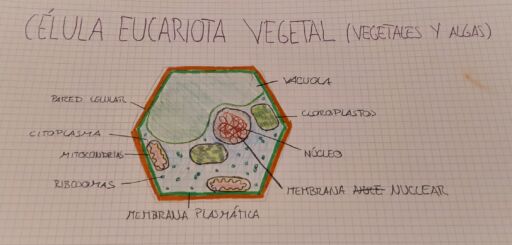 CÉLULA EUCARIOTA VEGETAL (VEGETALES Y ALGAS)
VACUOLA
PARED CELULAR
CLOROPLASTOS
CITOPLASMA
MITOCONDRIAS
NÚCLEO
RIBOSOMAS
MEMBRANA NUCLEAR
MEMBRANA PLASMÁTICA